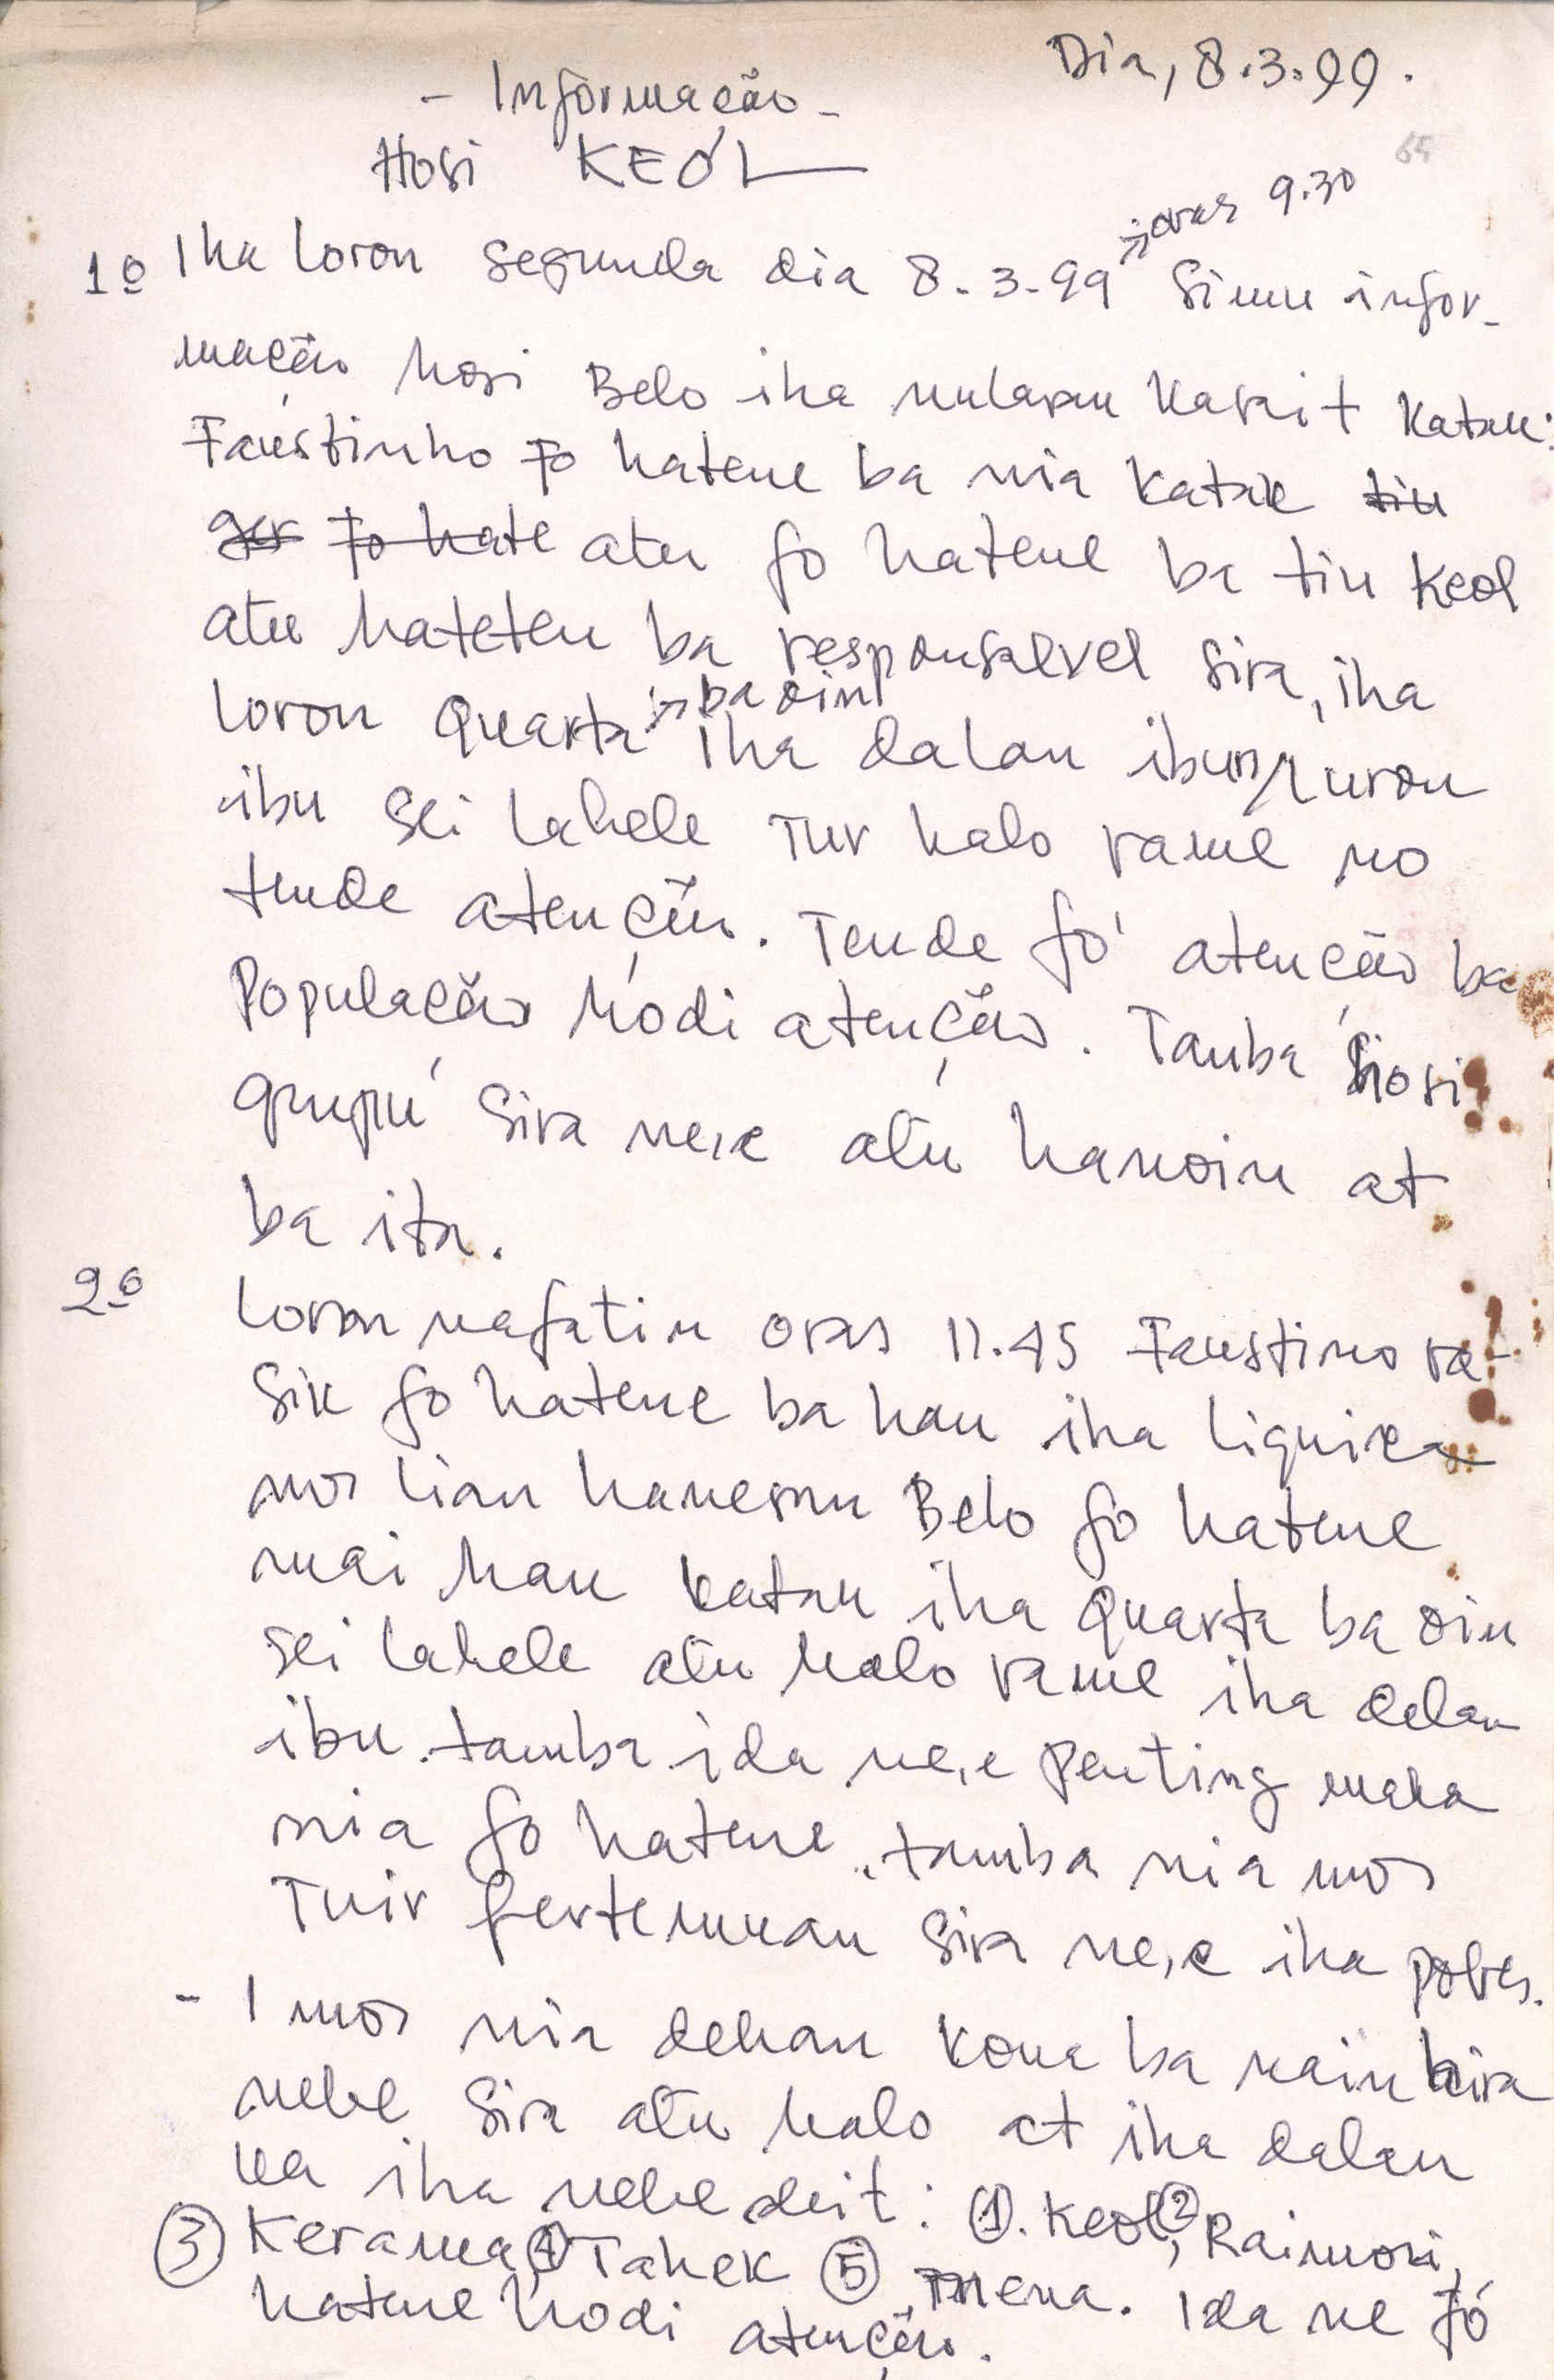 Dia, 8.3.99.
- Informação -
Hosi KEÓL
oras 9.30
1º Iha loron segunda dia 8.3.99 Simu infor-
mação hosi Belo iha mulapau Karait Katak:
Faustinho Fo hatene ba nia Katak tiu
ger fo hate atu fo hatene ba tiu Keol
atu hateten ba responsalvel sira, iha
loron Quarta ba oin
iha dalan ibun nuron
ibu sei labele Tur halo rame no
tende atenção. Tende fó atenção ba
População hodi atenção. Tanba hosi
grupú sira ne,e atu hanoin at
ba ita.
2º loron nafatin oras 11.45 Faustino ra-
sik fo hatene ba hau iha liquica
mos lian hanesan Belo fo hatene
mai hau katak iha Quarta ba oin
sei labele atu halo rame iha dalan
ibu. tamba ida ne,e penting maka
nia fo hatene, tamba nia mos
Tuir pertemuan sira ne,e iha polres.
- I mos nia dehan kona ba nain hira
nebe sira atu halo at iha dalan
ka iha nebe deit: (1). Keol, (2) Raimori,
(3) Kerama (4) Tahek (5) mena. Ida ne fó
hatene hodi atenção.